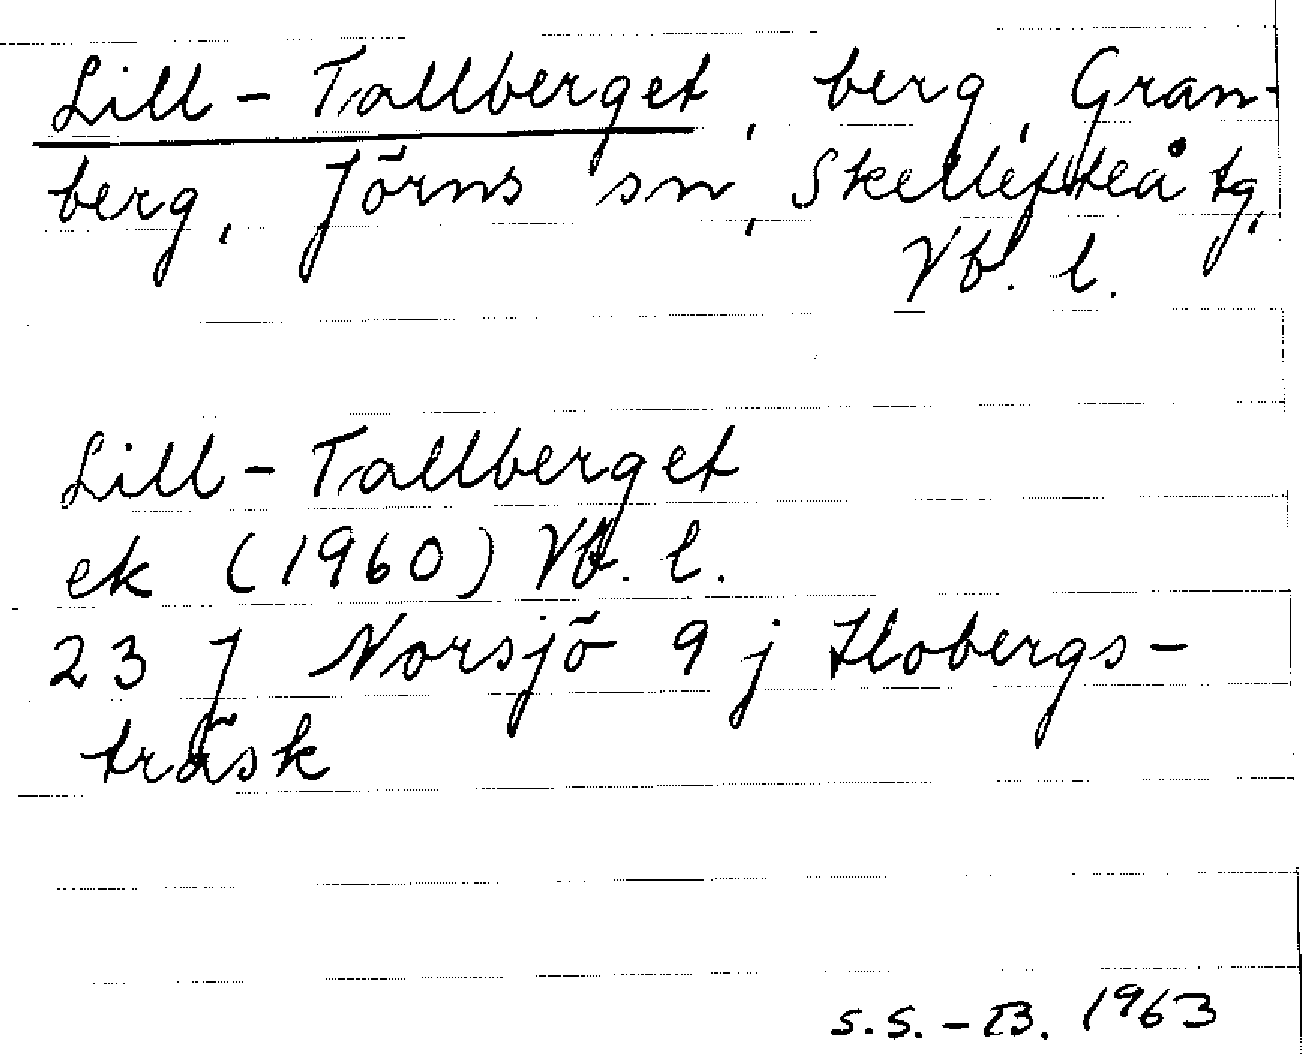 Lill-Tallberget, berg, Gran-
berg, Jörns sn, Skellefteå tg,
Vb. l.
Lill-Tallberget
ek (1960) Vb. l.
23 J Norsjö 9 j Flobergs-
träsk
S.S.-B. 1963